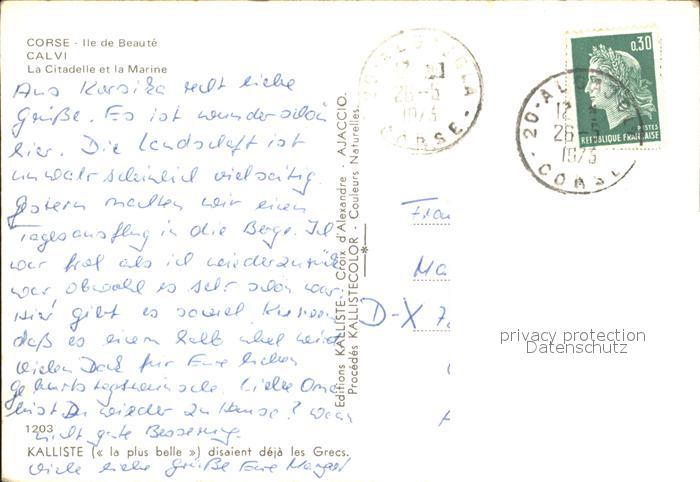 CORSE - Ile de Beauté
CALVI
La Citadelle et la Marine
Aus Korsika recht liebe
Grüße. Es ist wunderschön
hier. Die Landschaft ist
unwahrscheinlich vielseitig.
Gestern machten wir einen
Tagesausflug in die Berge. Ich
war froh als ich wieder zurück
war obwohl es sehr schön war.
Hier gibt es soviel Kurven
daß es einem halb übel wird
Vielen Dank für Eure lieben
Geburtstagswünsche. Liebe Oma
bist Du wieder zu Hause? Wenn
nicht gute Besserung.
1203
KALLISTE (« la plus belle ») disaient déjà les Grecs.
Viele liebe Grüße Eure
Editions KALLISTE - Croix d'Alexandre - AJACCIO.
Procédés KALLISTECOLOR - Couleurs Naturelles.
20-
26-5
1973
CORSE-
0,30
POSTES
REPUBLIQUE FRANÇAISE
20-
26-5
1973
CORSE
D-X 7
privacy protection
Datenschutz